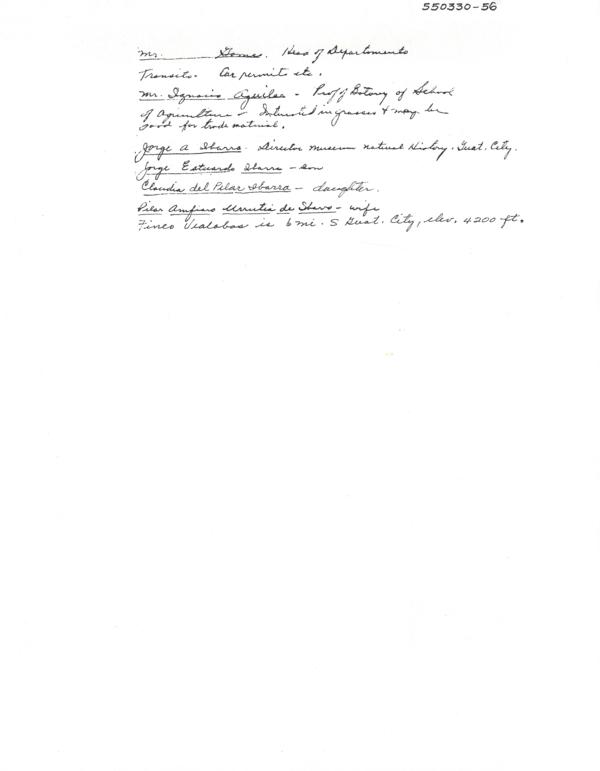 550330-56
Mr. Gomez. Head of Departamento
Transito. Car permits etc.
Mr. Ignacio Aguilar - Prof of Botany of School
of Agriculture - Interested in grasses & may be
good for trade material.
Jorge A Ibarra. Director museum natural History. Guat. City.
Jorge Estuardo Ibarra - son
Claudia del Pilar Ibarra - daughter.
Pilar Urrutia de Ibarra - wife
Finca is 6 mi. S Guat. City, elev. 4200 ft.